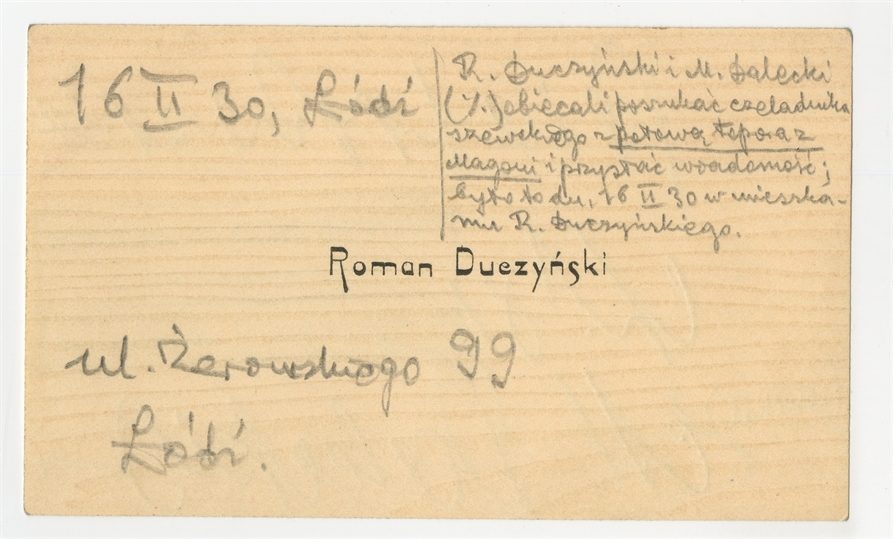 16 II 30, Łódź
R. Duczyński i M. Dalęcki
(?.) obiecali poszukać czeladnika
szewskiego z połową łeporaz
Magoni i przysłać wiadomość;
było to dn. 16 II 30 w mieszka-
niu R. Duczyńskiego.
Roman Duczyński
ul. Żeromskiego 99
Łódź.